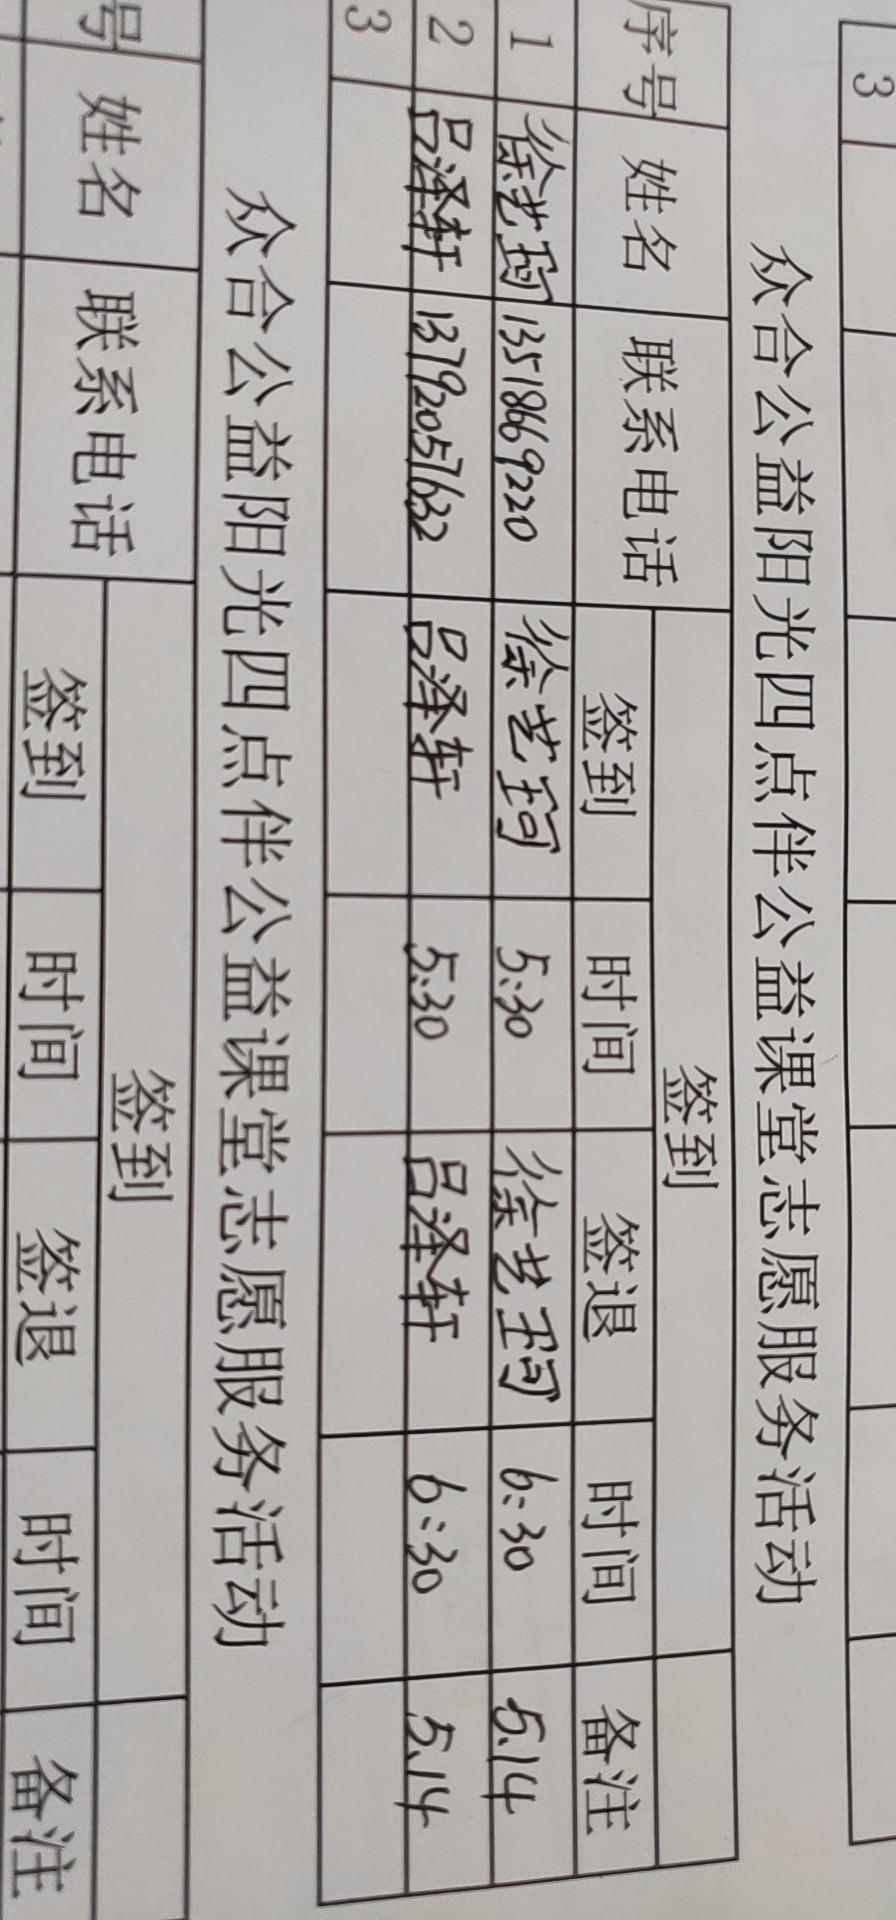 3
众合公益阳光四点伴公益课堂志愿服务活动
签到
序号 姓名 联系电话 签到 时间 签退 时间 备注
1 徐艺珂 13518669220 徐艺珂 5:30 徐艺珂 6:30 5.14
2 吕泽轩 13792057632 吕泽轩 5:30 吕泽轩 6:30 5.14
3
众合公益阳光四点伴公益课堂志愿服务活动
签到
号 姓名 联系电话 签到 时间 签退 时间 备注